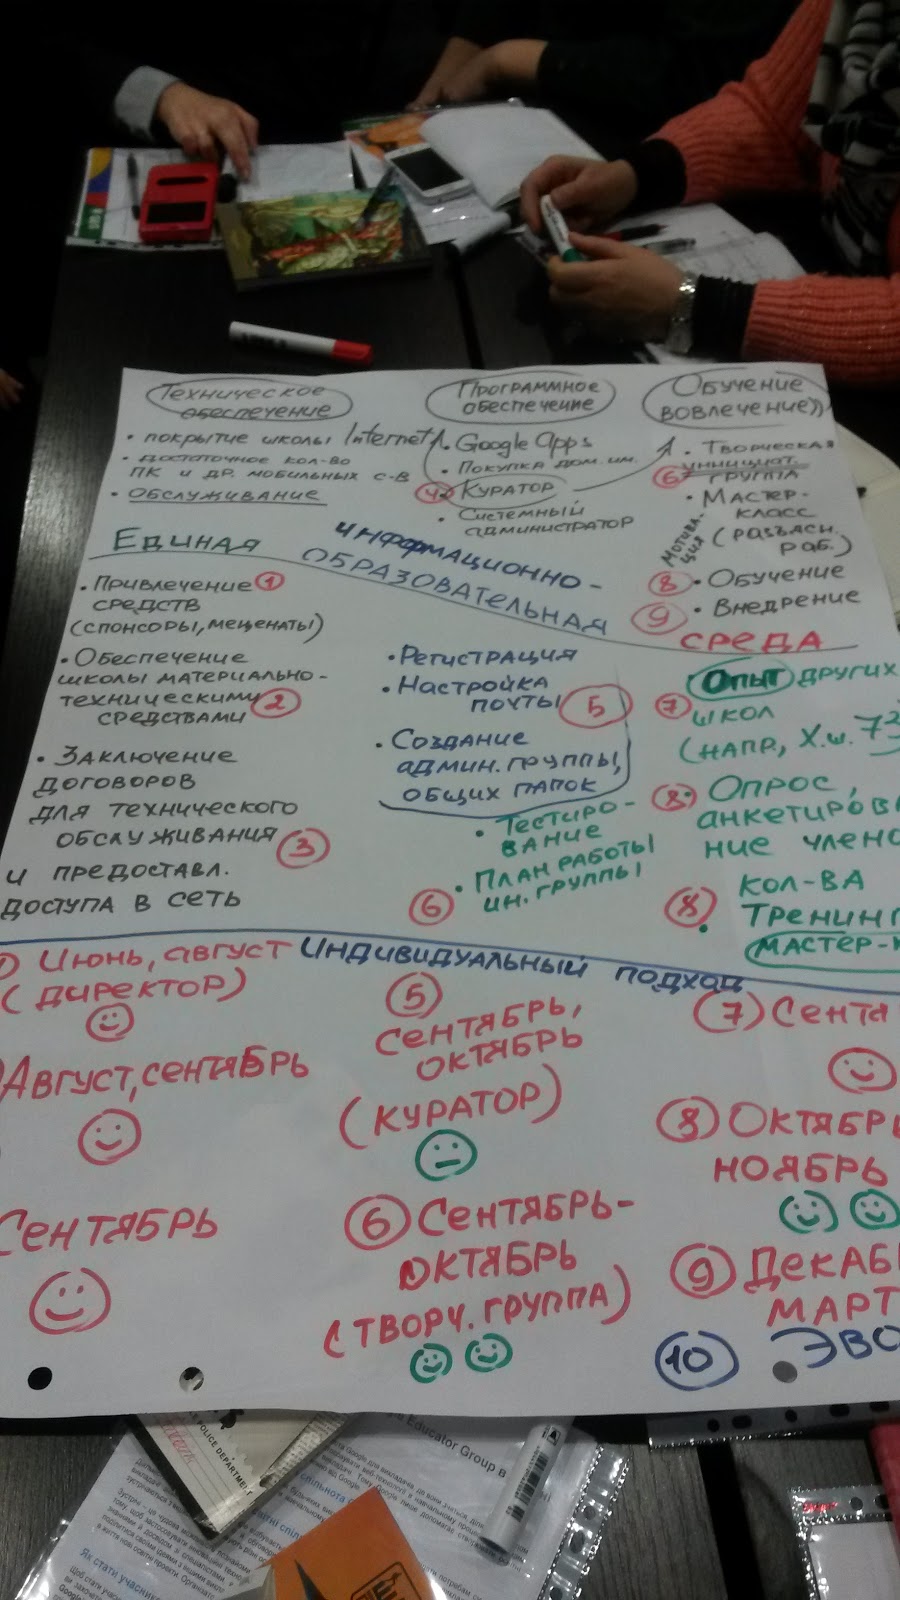 Техническое
обеспечение
• покрытие школы Internet
• достаточное кол-во
ПК и др. мобильных с-в
• Обслуживание
Программное
обеспечение
• Google Apps
• Покупка дом. им.
4 Куратор
• Системный
администратор
Обучение
вовлечение))
• Творческая
группа
6
• Мастер-
класс
(разъясн.
раб.)
Мотива-
ция
8 • Обучение
9 • Внедрение
Единая
информационно-
образовательная
среда
• Привлечение 1
средств
(спонсоры, меценаты)
• Обеспечение
школы материально-
техническими 2
средствами
• Заключение
договоров
для технического
обслуживания 3
и предоставл.
доступа в сеть
• Регистрация
• Настройка
почты 5
• Создание
админ. группы,
общих папок
• Тестиро-
вание
• План работы
6 ин. группы
Опыт других
7 школ
(напр., Х.ш. 73
8 Опрос,
анкетиров
ние члено
кол-ва
8 Тренинг
мастер-к
Индивидуальный подход
Июнь, август
(директор)
Август, сентябрь
Сентябрь
5
Сентябрь,
октябрь
(куратор)
6 Сентябрь-
октябрь
(творч. группа)
7 Сентя
8 Октябрь
ноябрь
9 Декаб
март
10 Эво
POLICE DEPARTMENT
Educator Group в
Як стати учасник